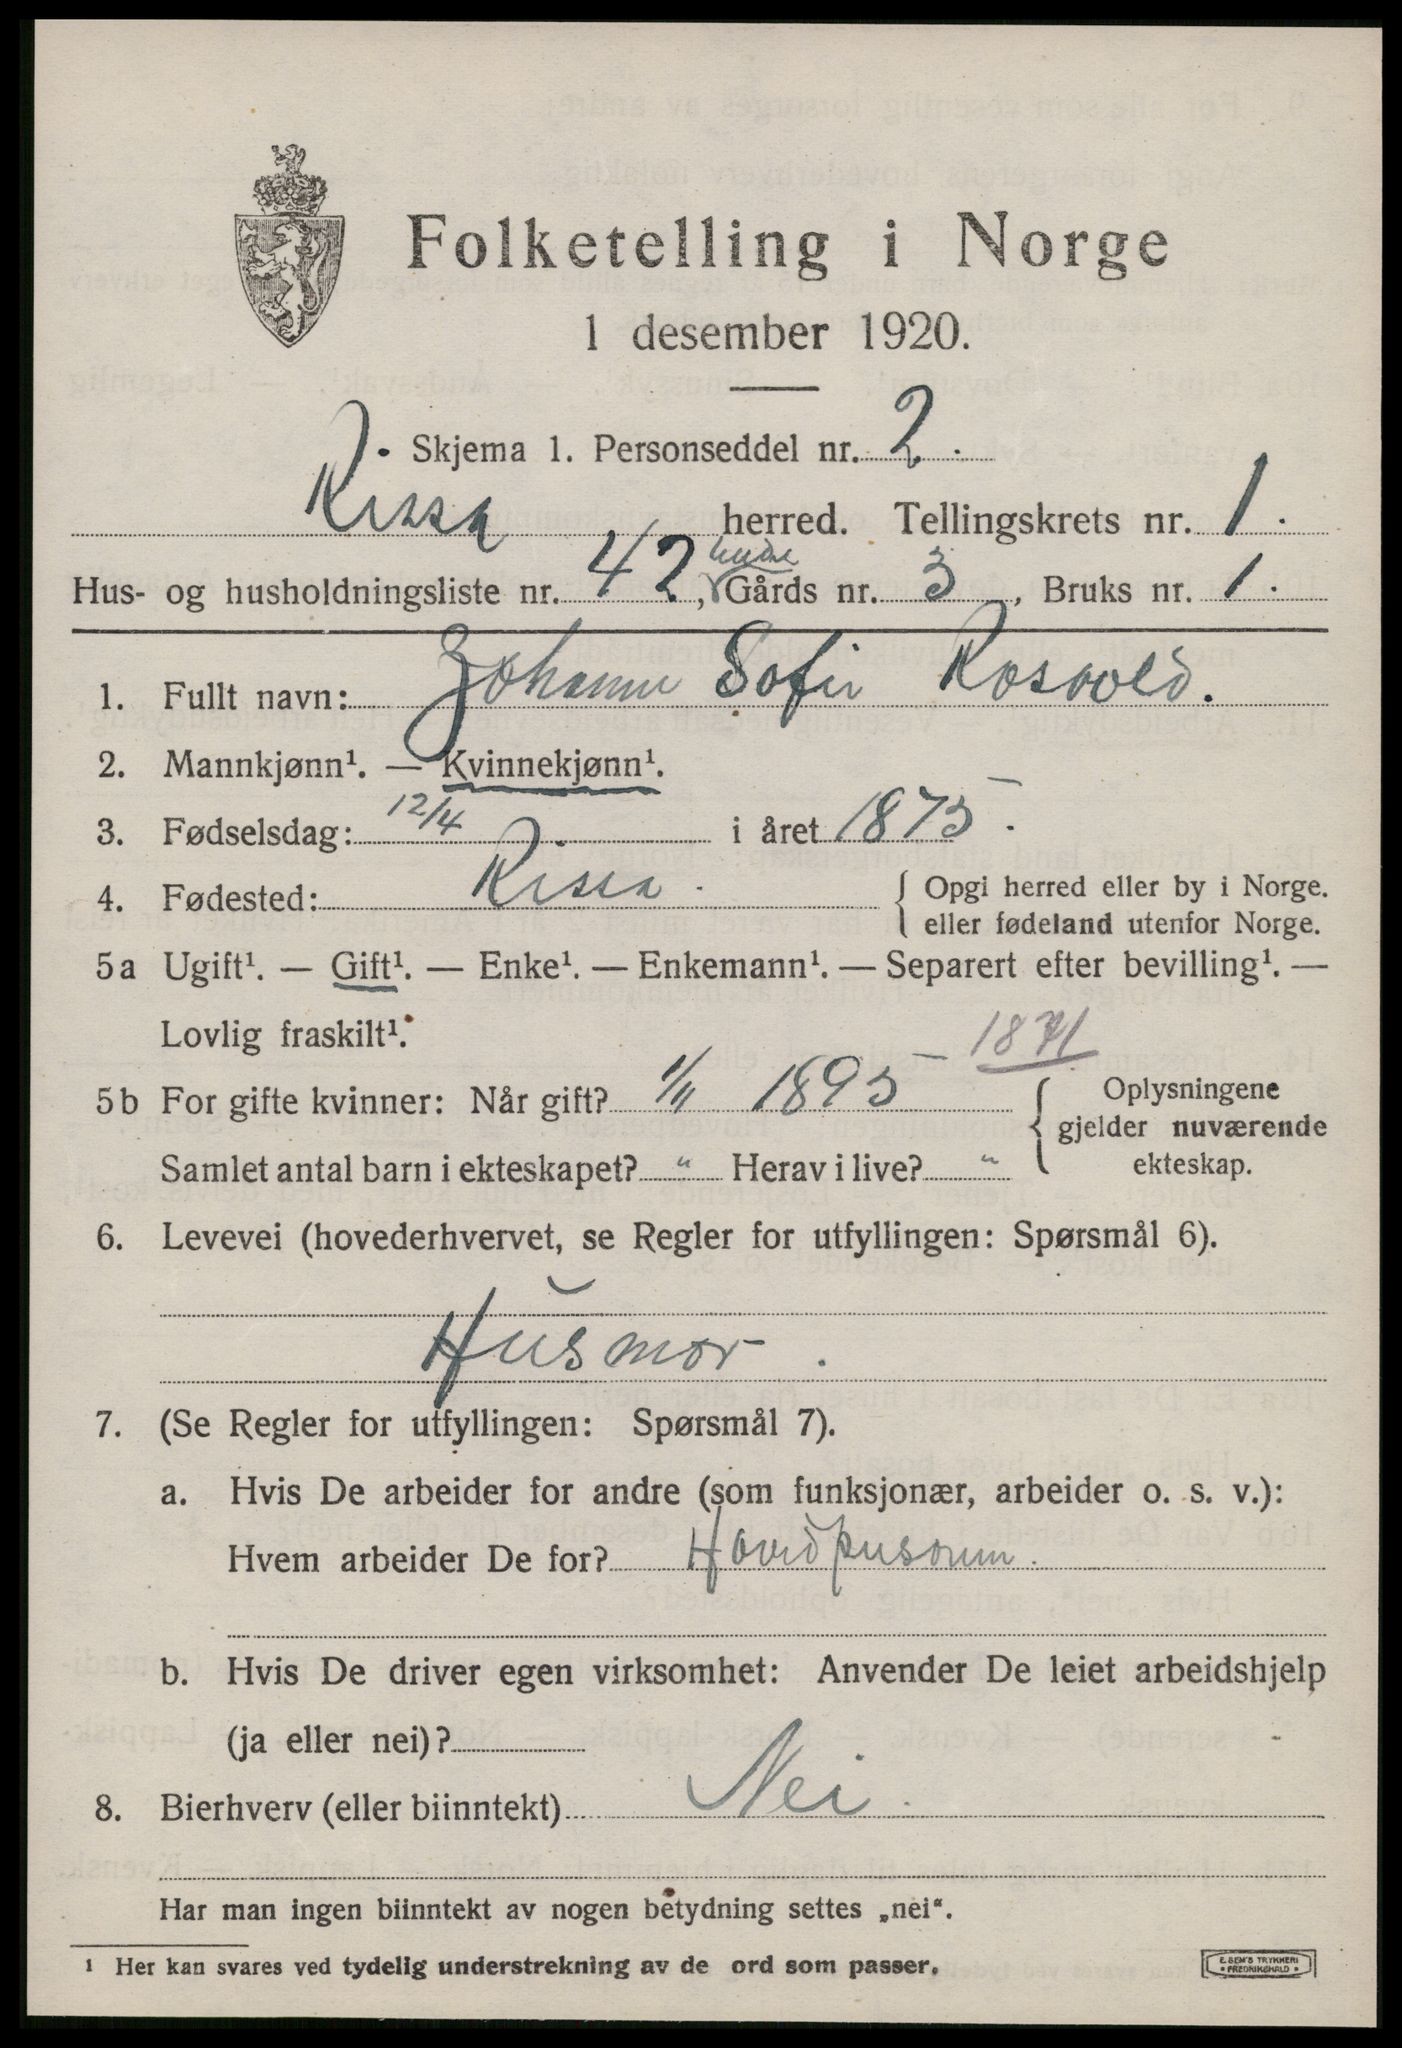 Folketelling i Norge
1 desember 1920.
Skjema 1. Personseddel nr. 2.
Rissa herred. Tellingskrets nr. 1.
Hus- og husholdningsliste nr. 42, Gårds nr. 3, Bruks nr. 1.
1. Fullt navn: Johanne Sofie Rosvold.
2. Mannkjønn¹. — Kvinnekjønn¹.
3. Fødselsdag: 12/4 i året 1875.
4. Fødested: Rissa. { Opgi herred eller by i Norge.
eller fødeland utenfor Norge.
5 a Ugift¹. — Gift¹. — Enke¹. — Enkemann¹. — Separert efter bevilling¹. —
Lovlig fraskilt¹.
5 b For gifte kvinner: Når gift? 1/11 1895
Samlet antal barn i ekteskapet? " Herav i live? "
{ Oplysningene
gjelder nuværende
ekteskap.
6. Levevei (hovederhvervet, se Regler for utfyllingen: Spørsmål 6).
Husmor.
7. (Se Regler for utfyllingen: Spørsmål 7).
a. Hvis De arbeider for andre (som funksjonær, arbeider o. s. v.):
Hvem arbeider De for? Hovedpersonen.
b. Hvis De driver egen virksomhet: Anvender De leiet arbeidshjelp
(ja eller nei)?
8. Bierhverv (eller biinntekt) Nei.
Har man ingen biinntekt av nogen betydning settes „nei“.
¹ Her kan svares ved tydelig understrekning av de ord som passer.
E. SEM'S TRYKKERI
FREDRIKSHALD